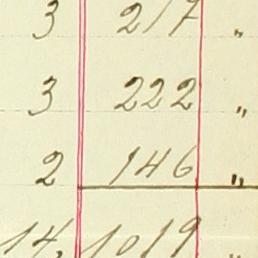 3 217 "
3 222 "
2 146 "
14, 1019 "